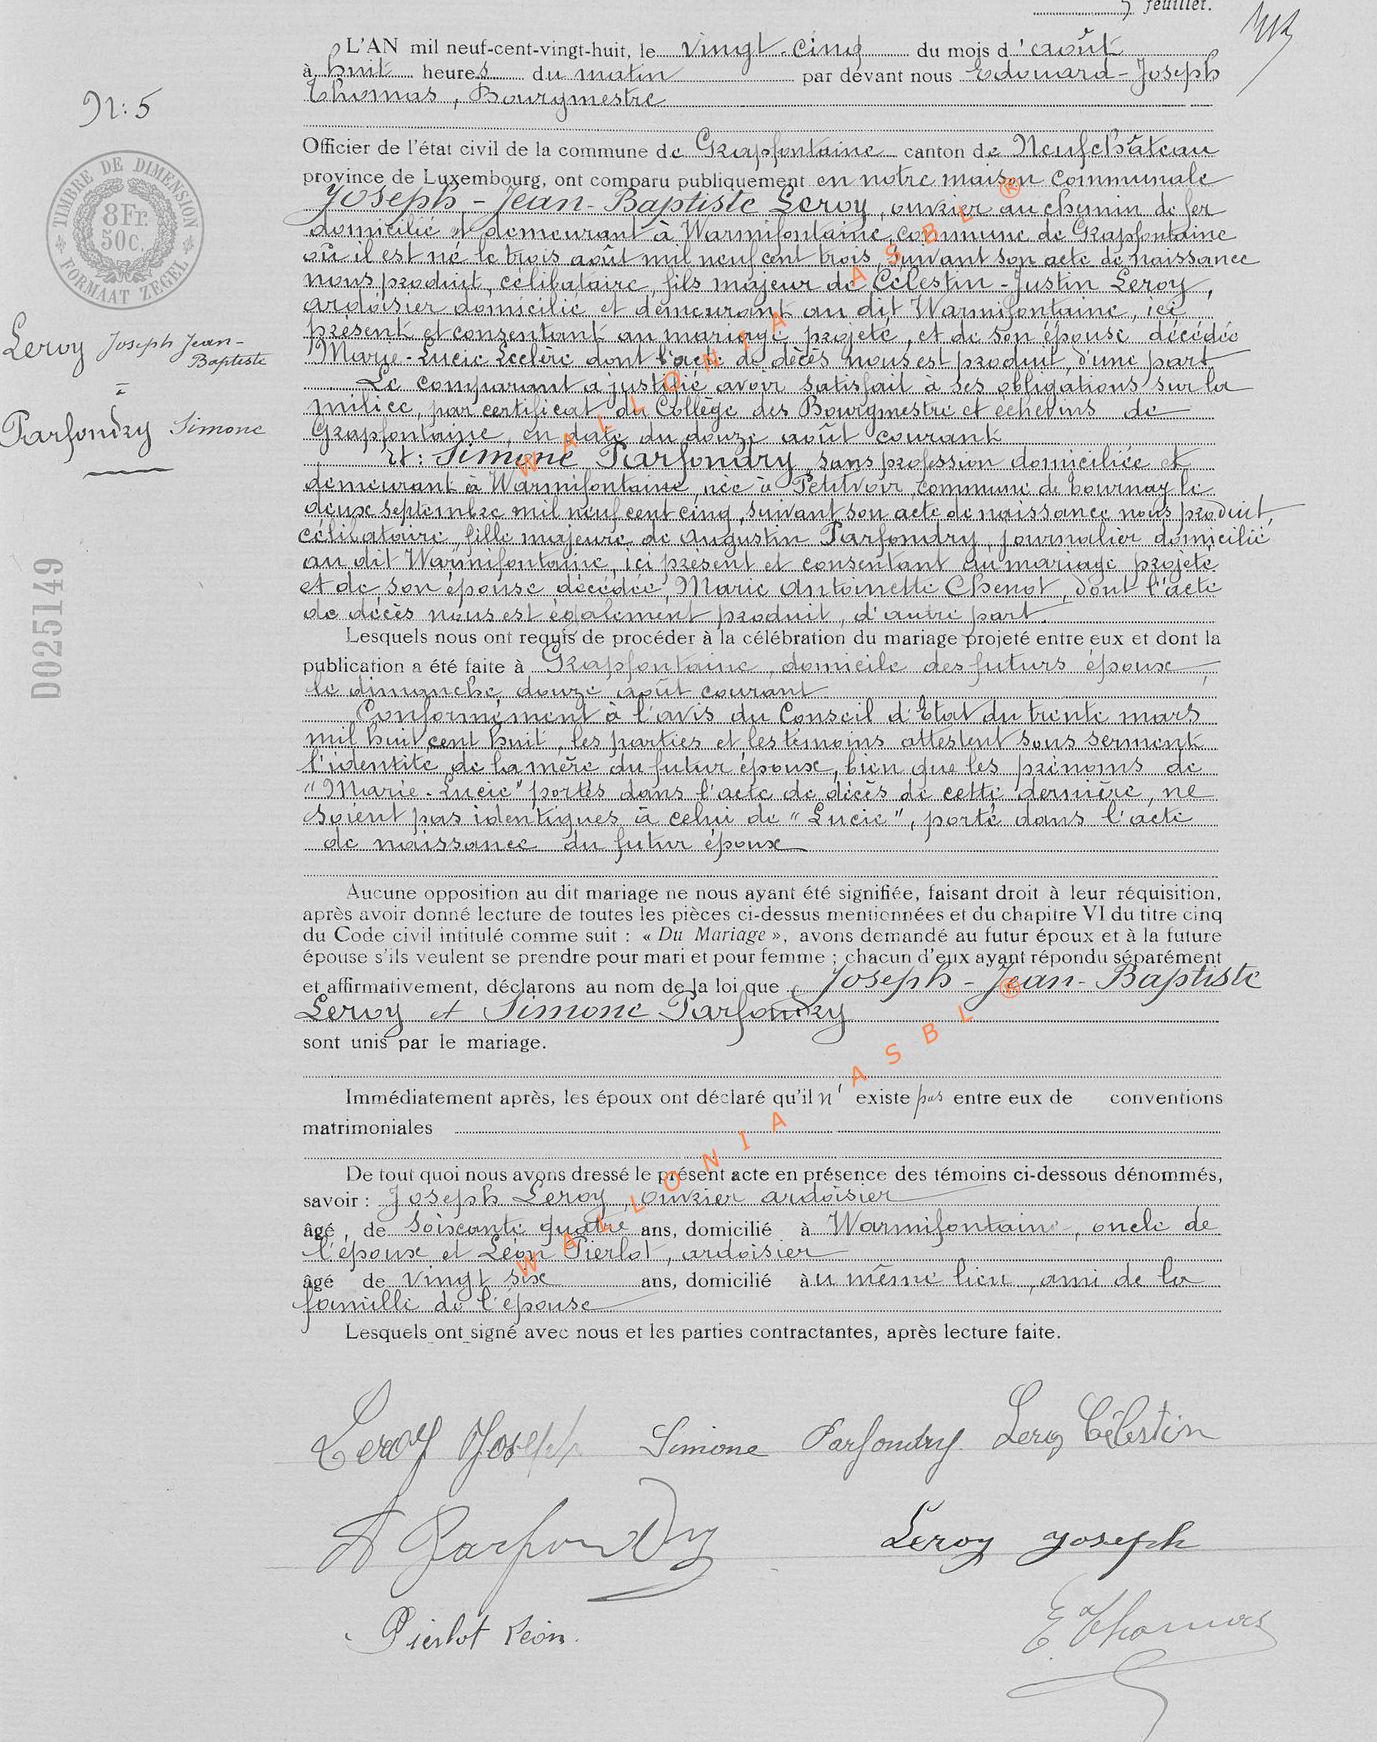 feuillet.
L'AN mil neuf-cent-vingt-huit, le vingt-cinq du mois d'août
à huit heures du matin par devant nous Edouard-Joseph
Thomas, Bourgmestre
N: 5
Officier de l'état civil de la commune de Grapfontaine canton de Neufchâteau
province de Luxembourg, ont comparu publiquement en notre maison communale
Joseph-Jean-Baptiste Leroy, ouvrier au chemin de fer
domicilié et demeurant à Warmifontaine, commune de Grapfontaine
où il est né le trois août mil neuf cent trois, suivant son acte de naissance
nous produit, célibataire, fils majeur de Célestin-Justin Leroy,
ardoisier domicilié et demeurant au dit Warmifontaine, ici
présent et consentant au mariage projeté, et de son épouse décédée
Marie-Lucie Leclère dont l'acte de décès nous est produit, d'une part
Le comparant a justifié avoir satisfait à ses obligations sur la
milice, par certificat du Collège des Bourgmestre et échevins de
Grapfontaine, en date du douze août courant
Et: Simone Parfondry, sans profession domiciliée et
demeurant à Warmifontaine, née à Petitvoir, commune de Tournay le
deux septembre mil neuf cent cinq, suivant son acte de naissance nous produit,
célibataire, fille majeure de Augustin Parfondry, journalier domicilié
au dit Warmifontaine, ici présent et consentant au mariage projeté
et de son épouse décédée, Marie Antoinette Chenot, dont l'acte
de décès nous est également produit, d'autre part.
Lesquels nous ont requis de procéder à la célébration du mariage projeté entre eux et dont la
publication a été faite à Grapfontaine, domicile des futurs époux,
le dimanche douze août courant
Conformément à l'avis du Conseil d'Etat du trente mars
mil huit cent huit, les parties et les témoins attestent sous serment
l'identité de la mère du futur époux, bien que les prénoms de
"Marie-Lucie" portés dans l'acte de décès de cette dernière, ne
soient pas identiques à celui de "Lucie", porté dans l'acte
de naissance du futur époux
Aucune opposition au dit mariage ne nous ayant été signifiée, faisant droit à leur réquisition,
après avoir donné lecture de toutes les pièces ci-dessus mentionnées et du chapitre VI du titre cinq
du Code civil intitulé comme suit : « Du Mariage », avons demandé au futur époux et à la future
épouse s'ils veulent se prendre pour mari et pour femme ; chacun d'eux ayant répondu séparément
et affirmativement, déclarons au nom de la loi que Joseph-Jean-Baptiste
Leroy et Simone Parfondry
sont unis par le mariage.
Immédiatement après, les époux ont déclaré qu'il n'existe pas entre eux de conventions
matrimoniales
De tout quoi nous avons dressé le présent acte en présence des témoins ci-dessous dénommés,
savoir : Joseph Leroy, ouvrier ardoisier
âgé de soixante quatre ans, domicilié à Warmifontaine, oncle de
l'époux et Léon Pierlot, ardoisier
âgé de vingt six ans, domicilié au même lieu, ami de la
famille de l'épouse
Lesquels ont signé avec nous et les parties contractantes, après lecture faite.
Leroy Joseph Simone Parfondry Leroy Célestin
A Parfondry Leroy Joseph
Pierlot Léon. E. Thomas
TIMBRE DE DIMENSION
8 Fr.
50 c.
FORMAAT ZEGEL
Leroy Joseph Jean-
Baptiste
=
Parfondry Simone
D025149
WALLONIA ASBL ®
WALLONIA ASBL ®